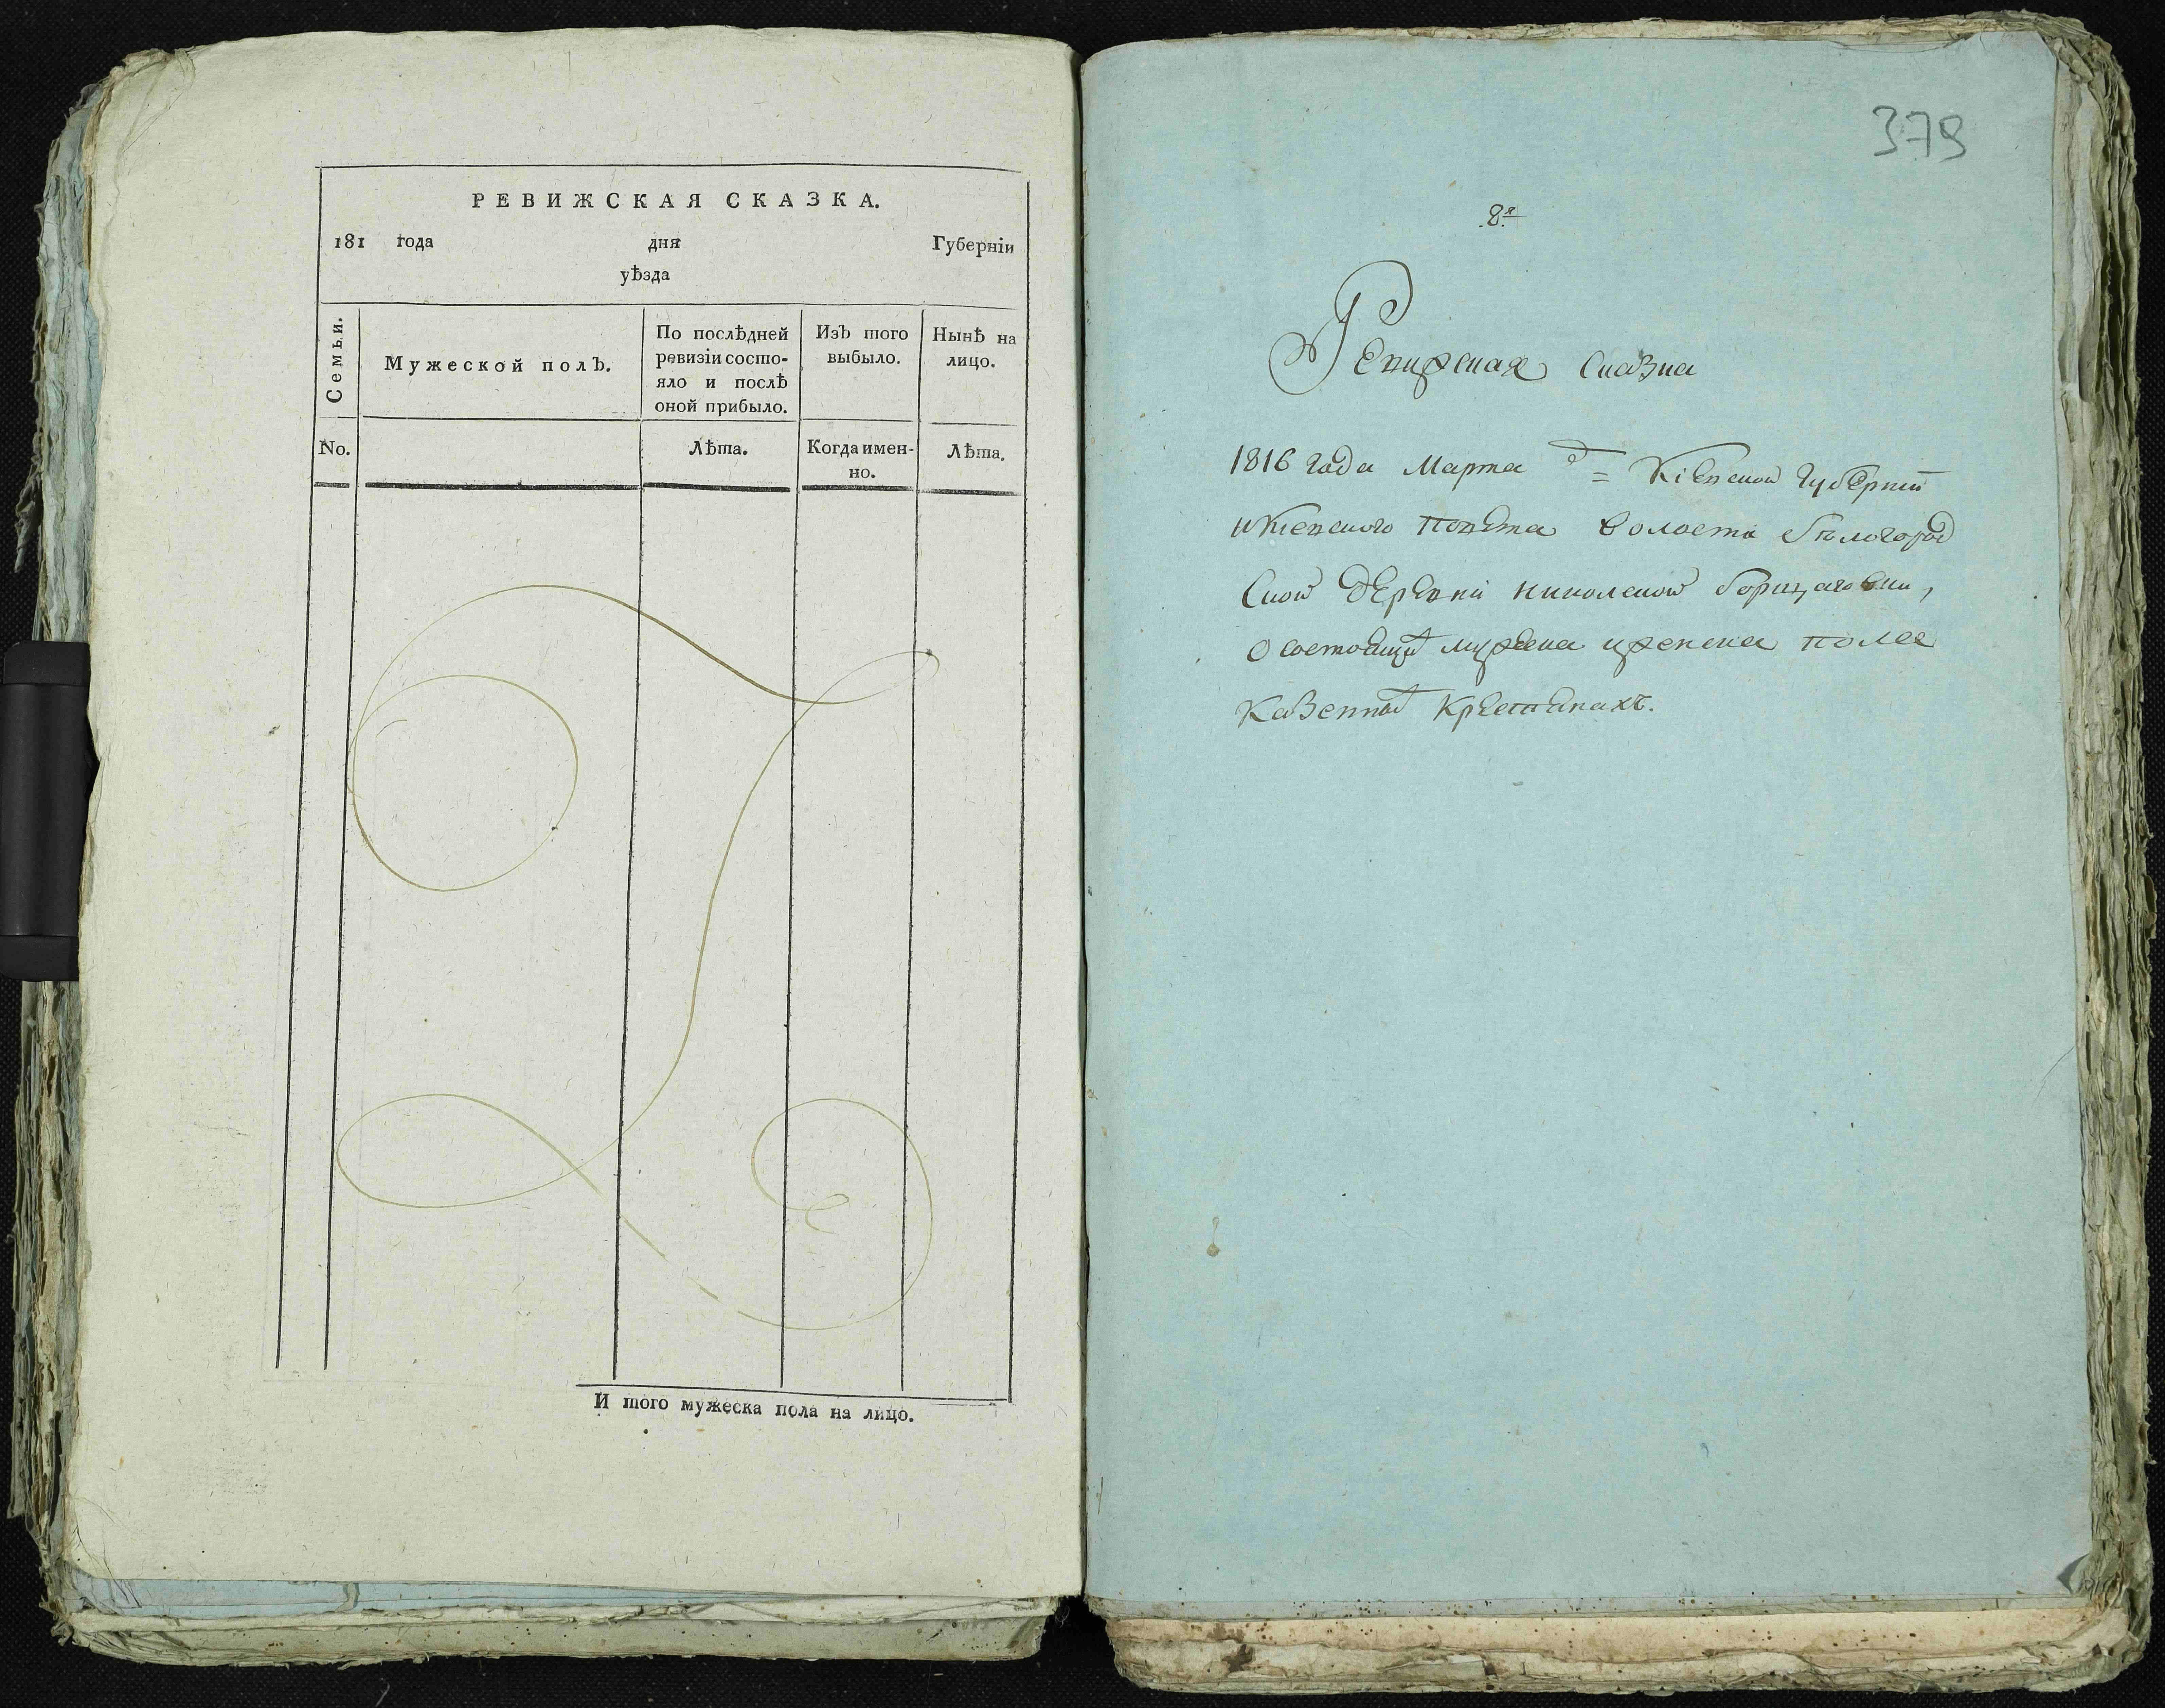 РЕВИЖСКАЯ СКАЗКА.
181 года дня Губерніи
уѣзда
Семьи.
Мужеской полъ.
По послѣдней
ревизіи состо-
яло и послѣ
оной прибыло.
Изъ того
выбыло.
Нынѣ на
лицо.
No.
Лѣта.
Когда имен-
но.
Лѣта.
И того мужеска пола на лицо.
379
8я
Ревижская Сказка
1816 года Марта д = Кіевской Губерніи
и Кіевского Повѣта волости бѣлогород
Ской деревни николской борщаговки,
О состоящих мужеска и женска пола
Казенных Крестьянахъ.